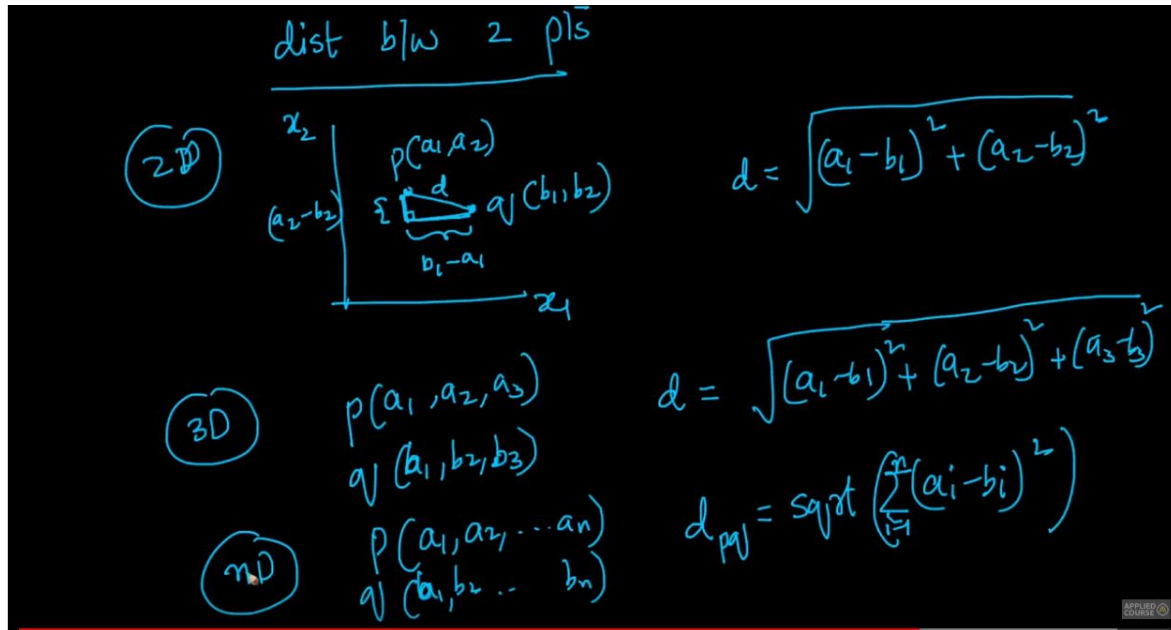 dist b/w 2 pts
2D
x₂
p(a₁,a₂)
d
q (b₁,b₂)
(a₂-b₂)
b₁-a₁
x₁
d = √((a₁-b₁)² + (a₂-b₂)²)
3D
p(a₁,a₂,a₃)
q (b₁,b₂,b₃)
d = √((a₁-b₁)² + (a₂-b₂)² + (a₃-b₃)²)
nD
p(a₁,a₂,...aₙ)
q (b₁,b₂.. bₙ)
d_pq = sqrt (∑ᵢ₌₁ⁿ(aᵢ-bᵢ)²)
APPLIED
COURSE